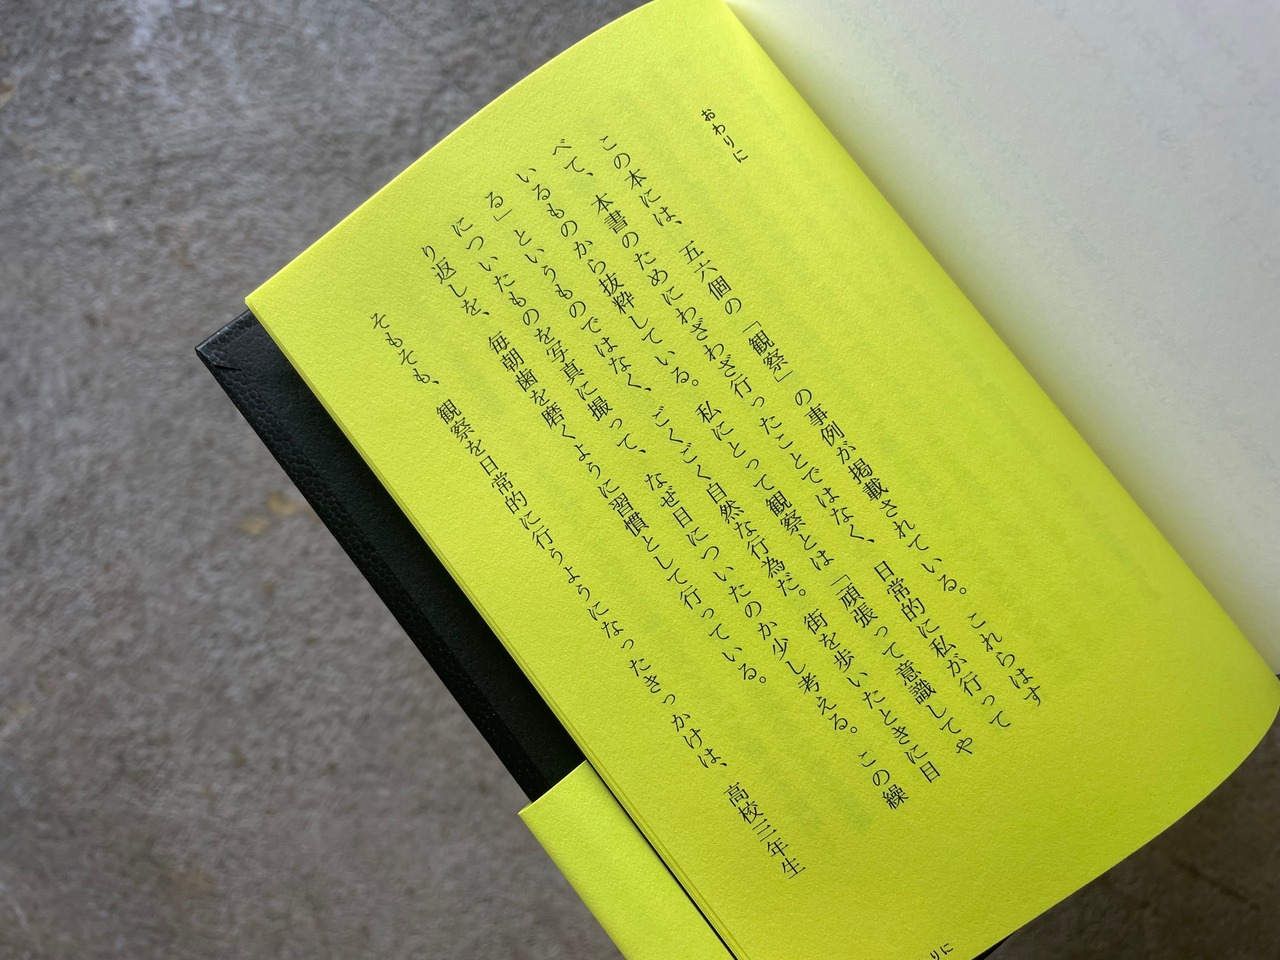 おわりに
この本には、五六個の「観察」の事例が掲載されている。これらはす
べて、本書のためにわざわざ行ったことではなく、日常的に私が行って
いるものから抜粋している。私にとって観察とは「頑張って意識してや
る」というものではなく、ごくごく自然な行為だ。街を歩いたときに目
についたものを写真に撮って、なぜ目についたのか少し考える。この繰
り返しを、毎朝歯を磨くように習慣として行っている。
そもそも、観察を日常的に行うようになったきっかけは、高校三年生
りに